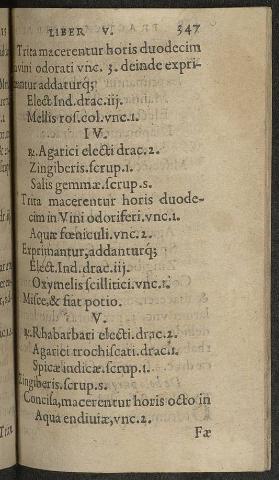 LIBER V. 347
Trita macerentur horis duodecim
in vini odorati vnc. 3. deinde expri-
mentur addaturq;
Elect.Ind.drac.iij.
Mellis ros.col.vnc.1.
IV.
℞.Agarici electi drac.2.
Zingiberis.scrup.1.
Salis gemmæ.scrup.s.
Trita macerentur horis duode-
cim in Vini odoriferi.vnc.1.
Aquæ fœniculi.vnc.2.
Exprimantur,addanturq;
Elect.Ind.drac.iij.
Oxymelis scillitici.vnc.1.
Misce,& fiat potio.
V.
℞.Rhabarbari electi.drac.2.
Agarici trochiscati.drac.1.
Spicæ indicæ.scrup.1.
Zingiberis.scrup.s.
Concisa,macerentur horis octo in
Aqua endiuiæ,vnc.2.
Fæ